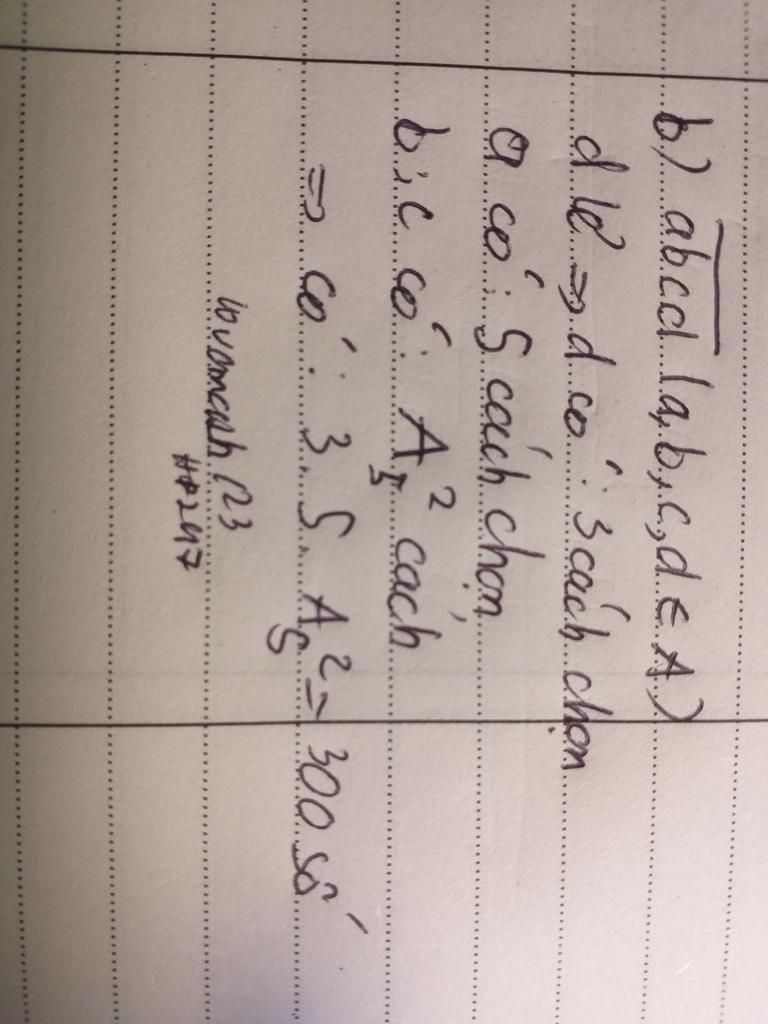 b) abcd (a,b,c,d ∈ A)
d lẻ => d có: 3 cách chọn
a có: 5 cách chọn
b; c có: A₅² cách
=> có: 3.5.A₅² = 300 số